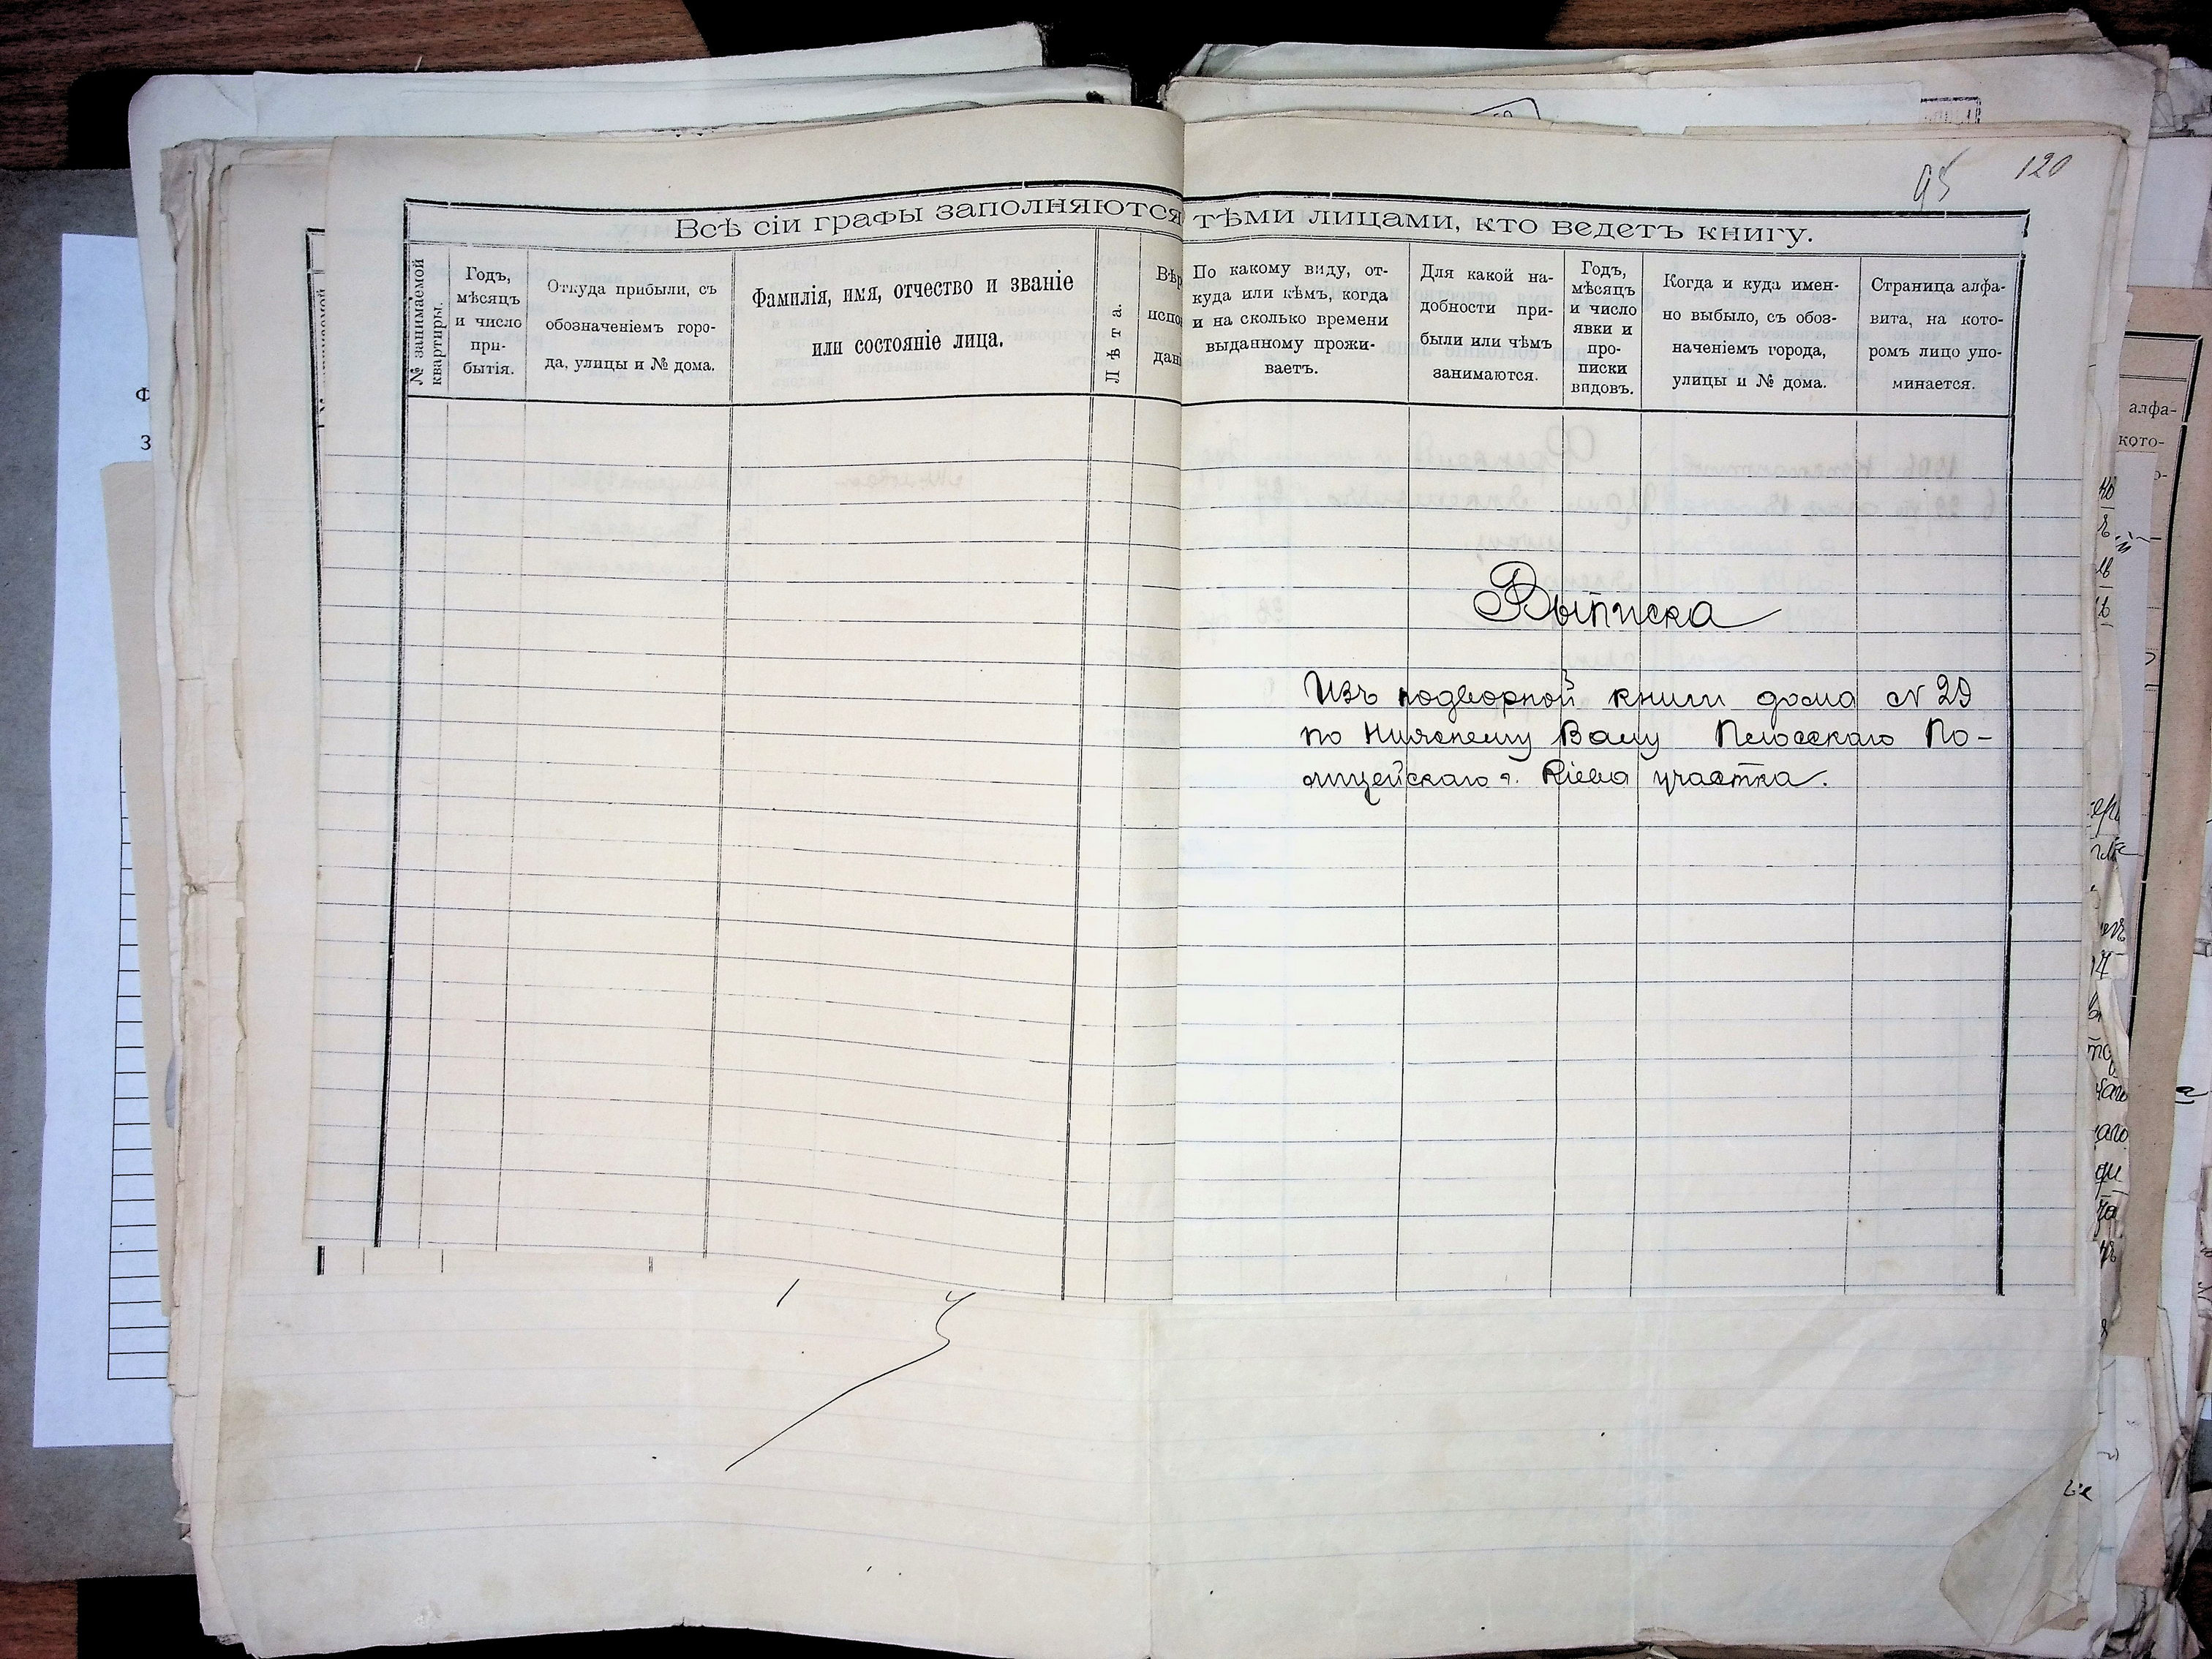 95 120
Всѣ сіи графы заполняются тѣми лицами, кто ведетъ книгу.
№ занимаемой
квартиры.
Годъ,
мѣсяцъ
и число
при-
бытія.
Откуда прибыли, съ
обозначеніемъ горо-
да, улицы и № дома.
Фамилія, имя, отчество и званіе
или состояніе лица.
Лѣта.
Вѣр
испо
дан
По какому виду, от-
куда или кѣмъ, когда
и на сколько времени
выданному прожи-
ваетъ.
Для какой на-
добности при-
были или чѣмъ
занимаются.
Годъ,
мѣсяцъ
и число
явки и
про-
писки
видовъ.
Когда и куда имен-
но выбыло, съ обоз-
наченіемъ города,
улицы и № дома.
Страница алфа-
вита, на кото-
ромъ лицо упо-
минается.
алфа-
кото-
Выписка
Изъ подворной книги дома № 29
по Нижнему Валу Плосскаго По-
лицейскаго г. Кіева участка.